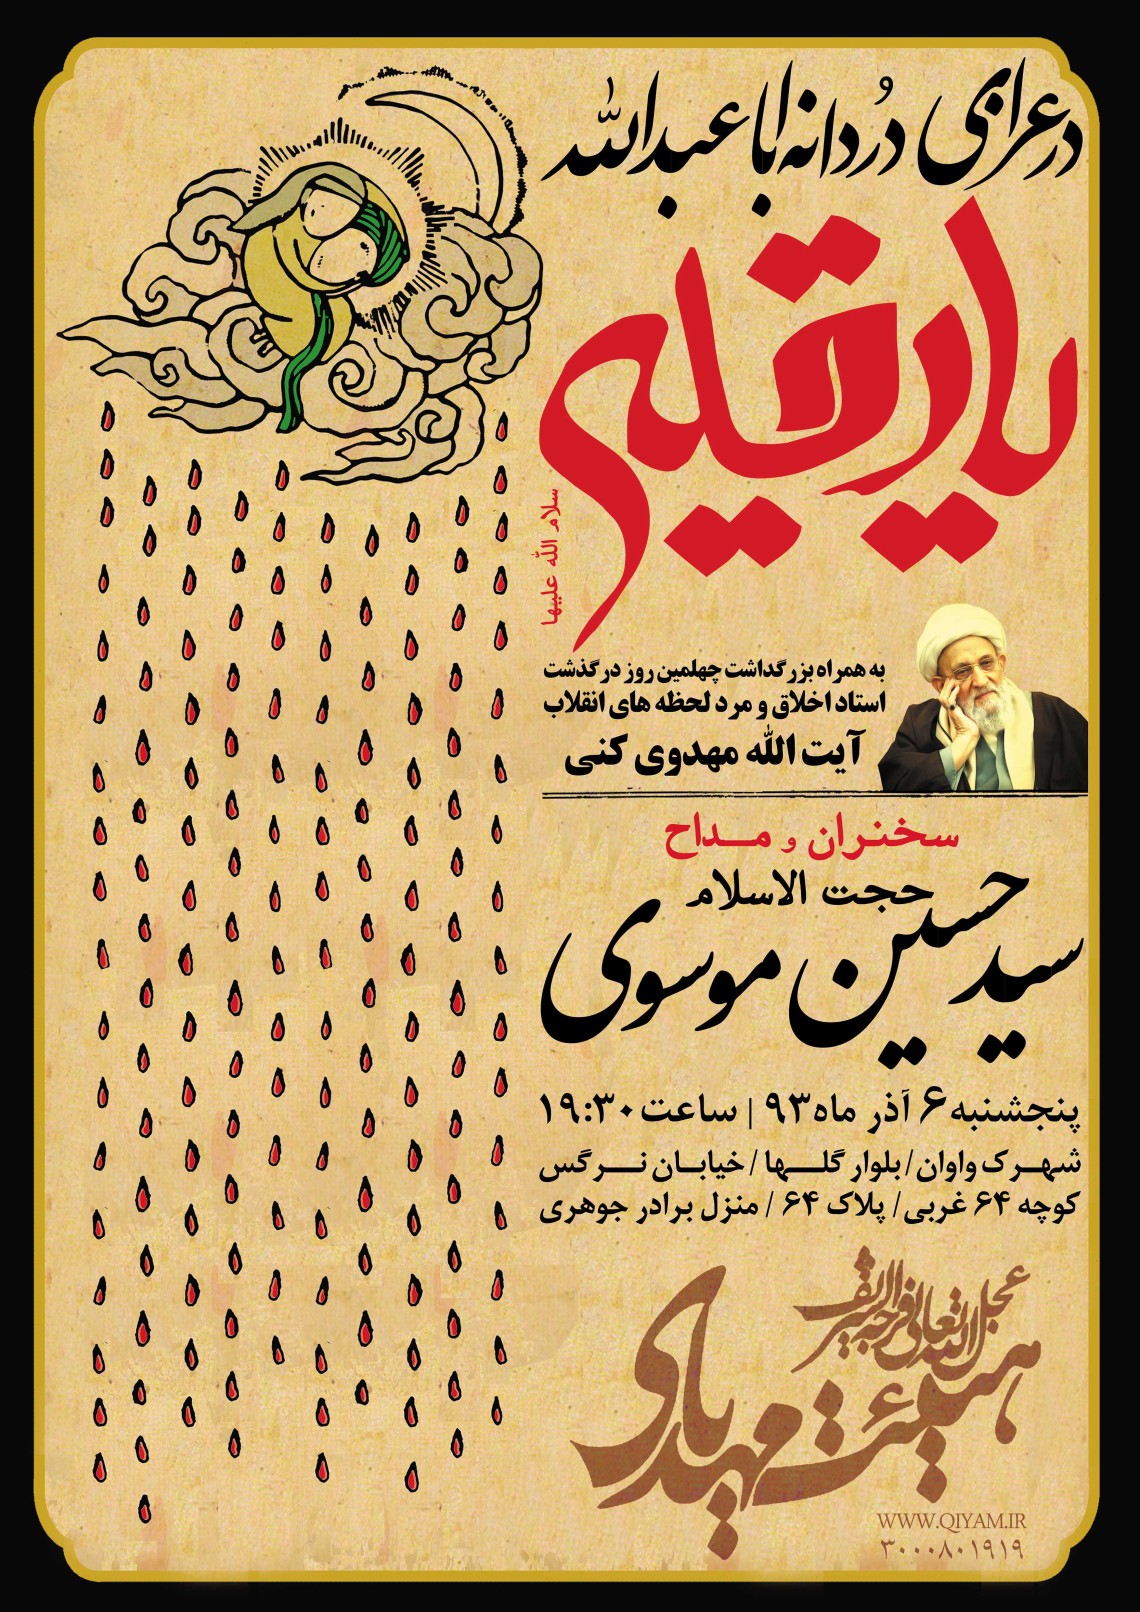 در عزای دُردانه ابا عبدالله
یا رقیه
سلام الله علیها
به همراه بزرگداشت چهلمین روز درگذشت
استاد اخلاق و مرد لحظه های انقلاب
آیت الله مهدوی کنی
سخنران و مداح
حجت الاسلام
سید حسین موسوی
پنجشنبه ۶ آذر ماه ۹۳ | ساعت ۱۹:۳۰
شهرک واوان / بلوار گلها / خیابان نرگس
کوچه ۶۴ غربی / پلاک ۶۴ / منزل برادر جوهری
عجل الله تعالی فرجه الشریف
هیئت مهدیاری
WWW.QIYAM.IR
۳۰۰۰۸۰۱۹۱۹